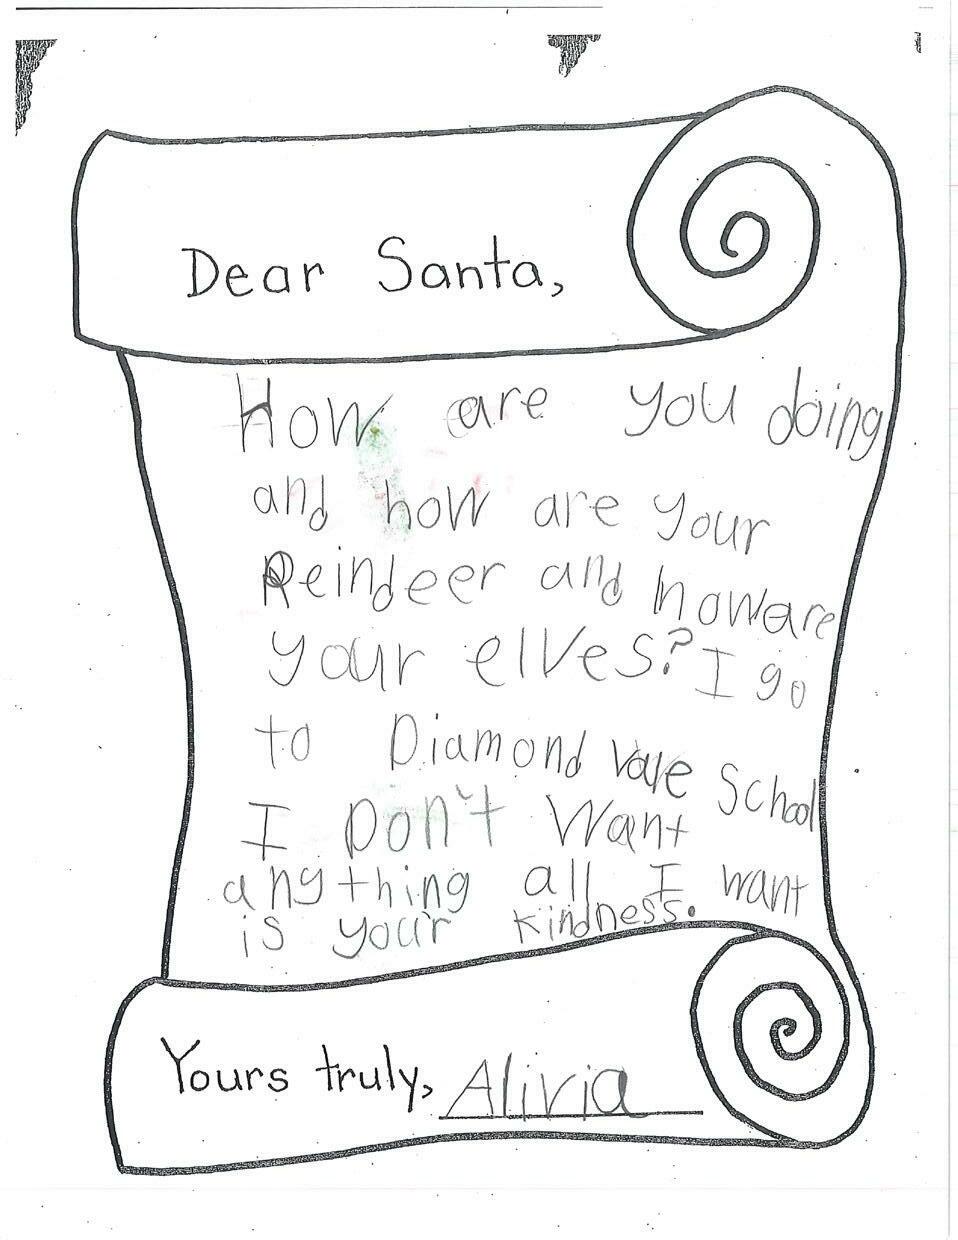 Dear Santa,
How are you doing
and how are your
Reindeer and how are
your elves? I go
to Diamond Vale School
I Don't Want
anything all I want
is your kindness.
Yours truly, Alivia